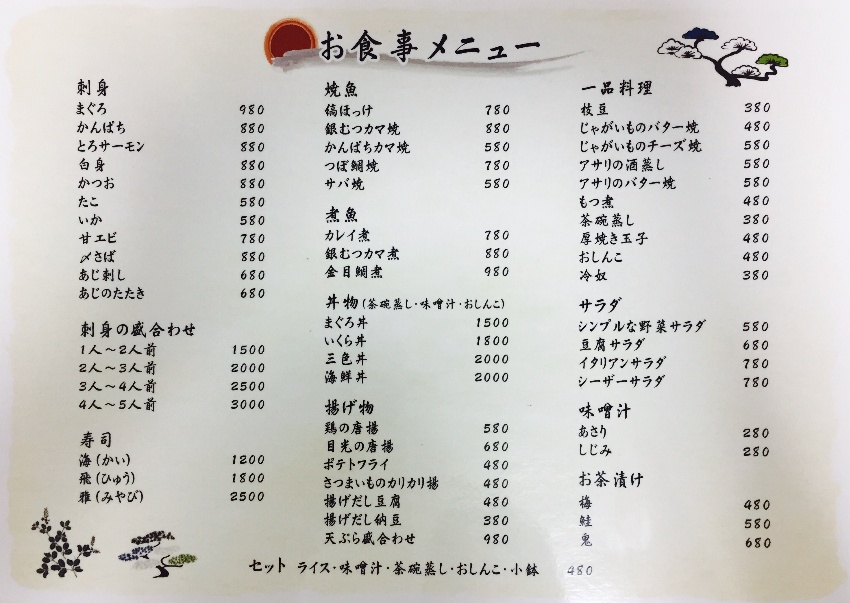 お食事メニュー
刺身
まぐろ 980
かんぱち 880
とろサーモン 880
白身 880
かつお 880
たこ 580
いか 580
甘エビ 780
〆さば 880
あじ刺し 680
あじのたたき 680
刺身の盛合わせ
1人～2人前 1500
2人～3人前 2000
3人～4人前 2500
4人～5人前 3000
寿司
海(かい) 1200
飛(ひゅう) 1800
雅(みやび) 2500
焼魚
縞ほっけ 780
銀むつカマ焼 880
かんぱちカマ焼 580
つぼ鯛焼 780
サバ焼 580
煮魚
カレイ煮 780
銀むつカマ煮 880
金目鯛煮 980
丼物(茶碗蒸し・味噌汁・おしんこ)
まぐろ丼 1500
いくら丼 1800
三色丼 2000
海鮮丼 2000
揚げ物
鶏の唐揚 580
目光の唐揚 680
ポテトフライ 480
さつまいものカリカリ揚 480
揚げだし豆腐 480
揚げだし納豆 380
天ぷら盛合わせ 980
一品料理
枝豆 380
じゃがいものバター焼 480
じゃがいものチーズ焼 580
アサリの酒蒸し 580
アサリのバター焼 580
もつ煮 480
茶碗蒸し 380
厚焼き玉子 480
おしんこ 480
冷奴 380
サラダ
シンプルな野菜サラダ 580
豆腐サラダ 680
イタリアンサラダ 780
シーザーサラダ 780
味噌汁
あさり 280
しじみ 280
お茶漬け
梅 480
鮭 580
鬼 680
セット ライス・味噌汁・茶碗蒸し・おしんこ・小鉢 480